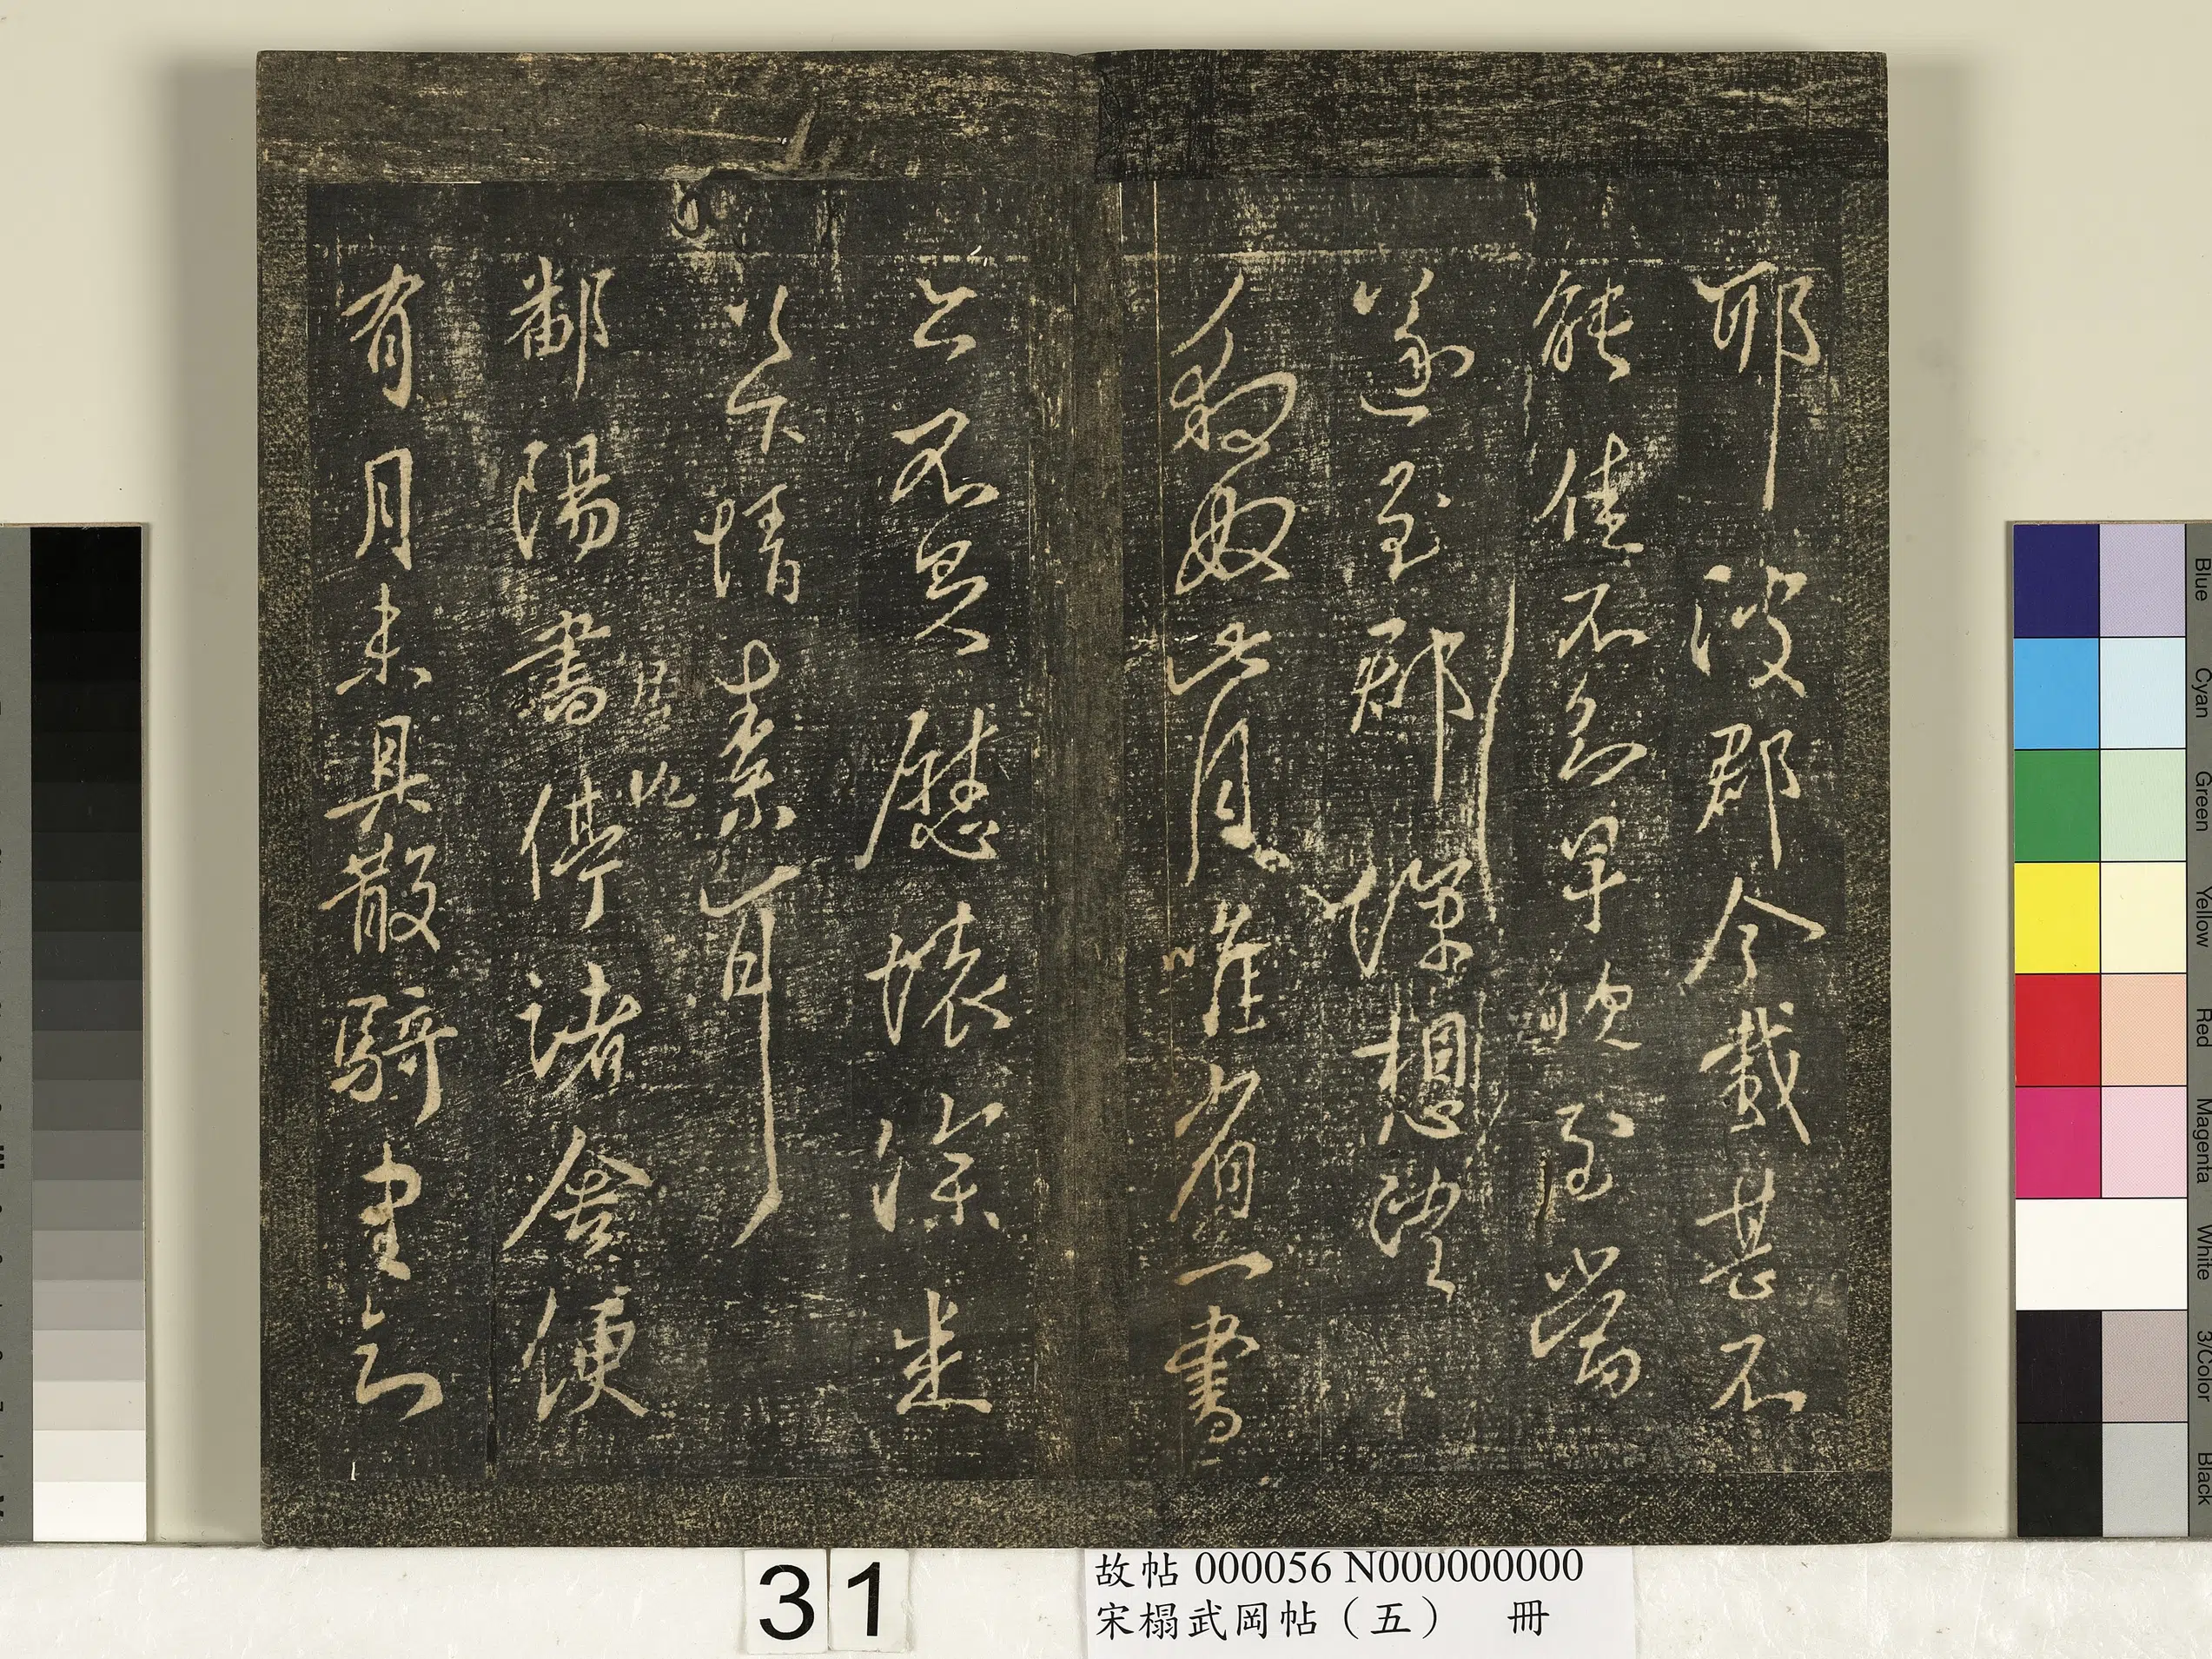 耶 彼郡今載甚不
能佳不知早晚至當
遂至郡深想望
豹奴此月唯省一書
亦不足慰懷深悉
以下情素耳
居此
鄱陽書停諸舍便
有月未具散騎書云
31
故帖 000056 N000000000
宋榻武岡帖（五） 冊
Blue
Cyan
Green
Yellow
Red
Magenta
White
3/Color
Black